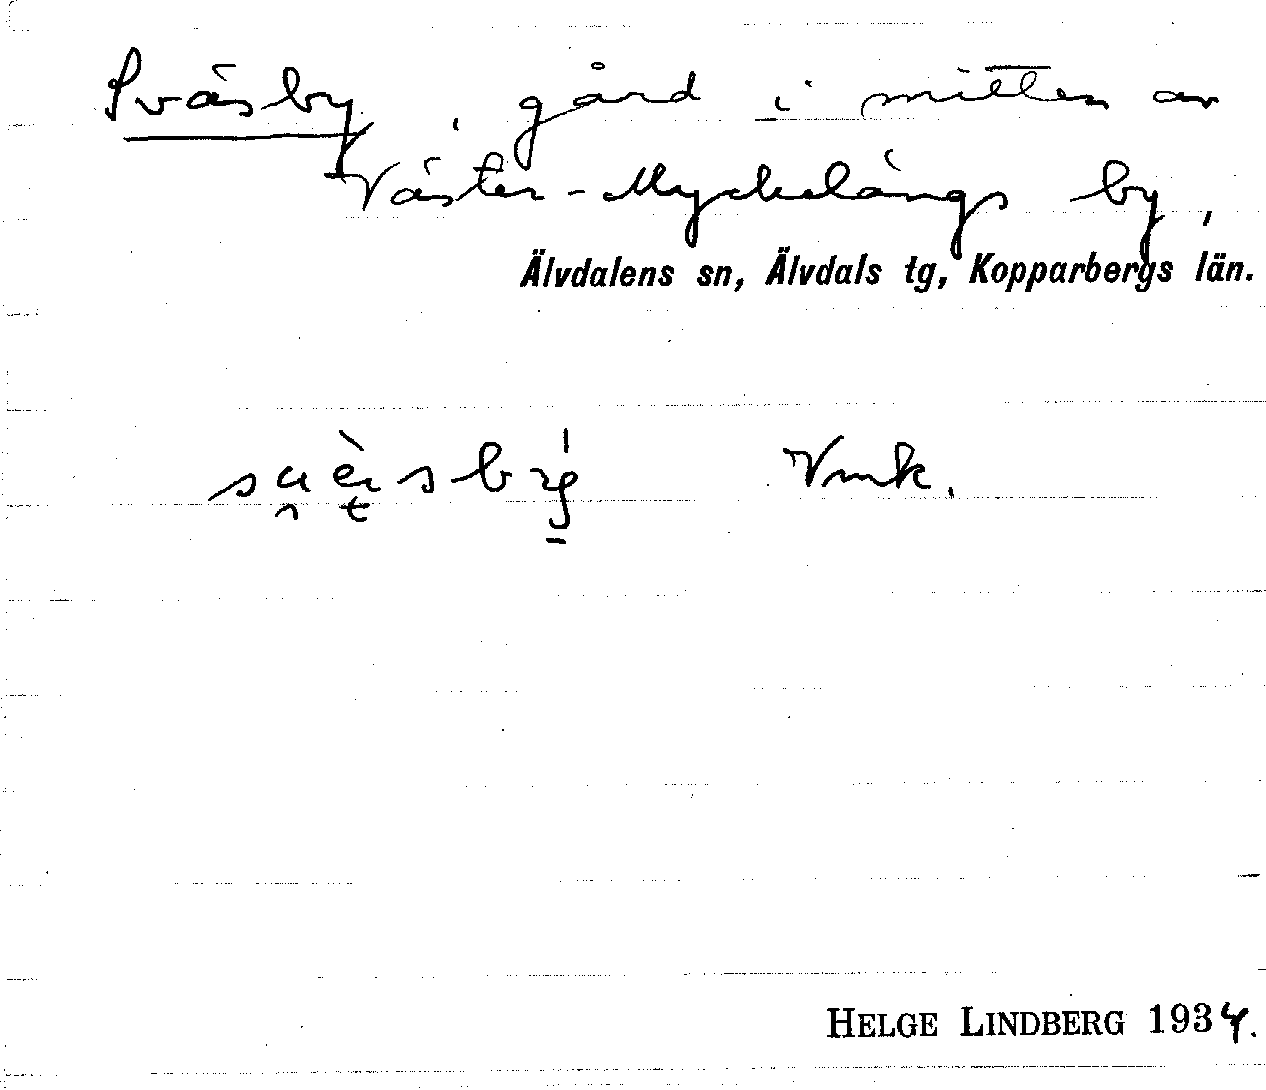 Sväsby, gård i mitten av
Väster-Myckelängs by,
Älvdalens sn, Älvdals tg, Kopparbergs län.
Vmk.
HELGE LINDBERG 1934.